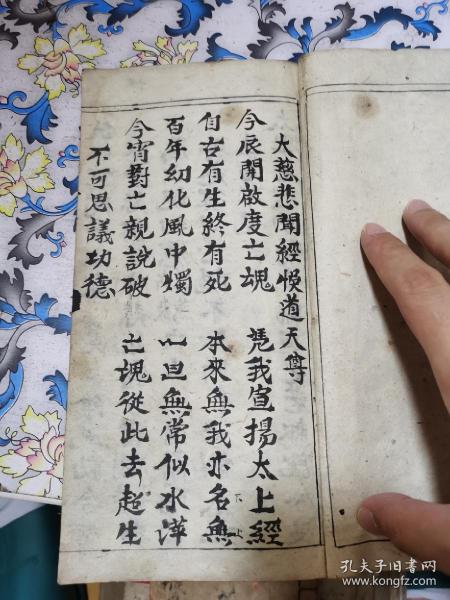 大慈悲聞經悞道天尊
今辰開啟度亡魂　凴我宣揚太上經
自古有生終有死　本來無我亦名無
百年幻化風中燭　一旦無常似水漂
今宵對亡親說破　亡魂從此去超生
不可思議功德
下
上
孔夫子旧书网
www.kongfz.com